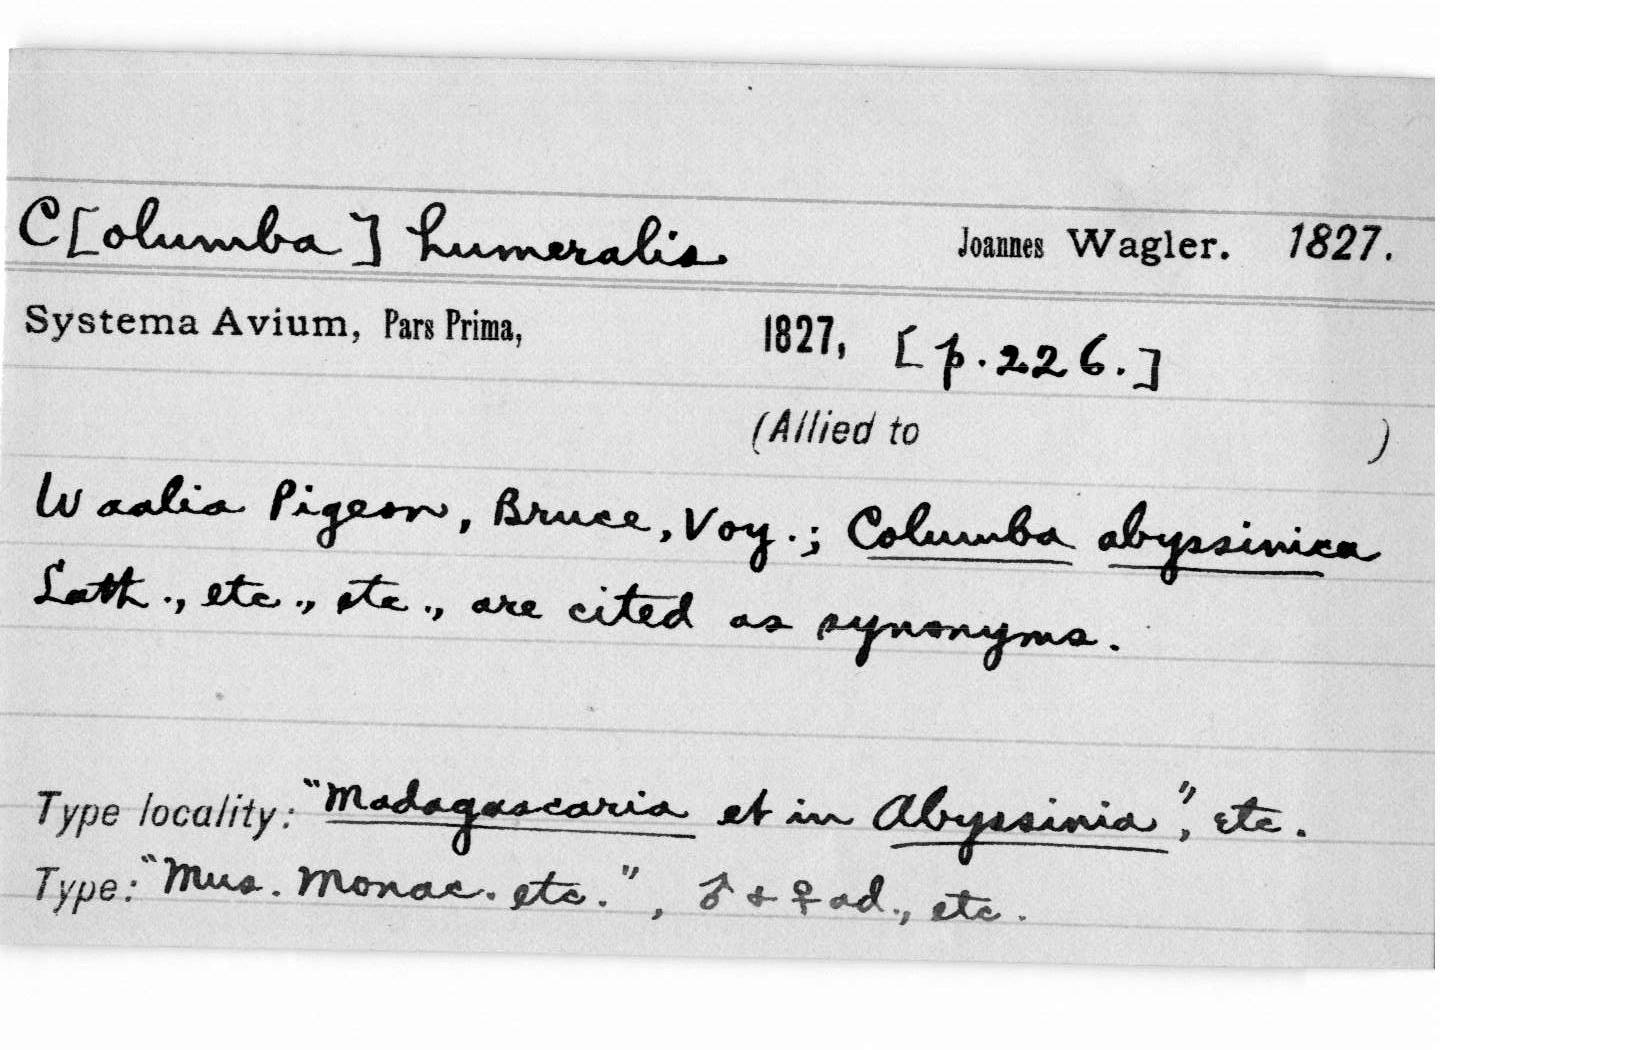 C[olumba] humeralis Joannes Wagler. 1827.
Systema Avium, Pars Prima, 1827, [p. 226.]
(Allied to )
Waalia Pigeon, Bruce, Voy.; Columba abyssinica
Lath., etc., etc., are cited as synonyms.
Type locality: "Madagascaria et in Abyssinia", etc.
Type: "Mus. Monac. etc.", ♂ & ♀ ad., etc.